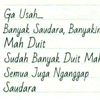 Ga Usah....
Banyak Saudara, Banyakin
Mah Duit
Sudah Banyak Duit Mah
Semua Juga Nganggap
Saudara